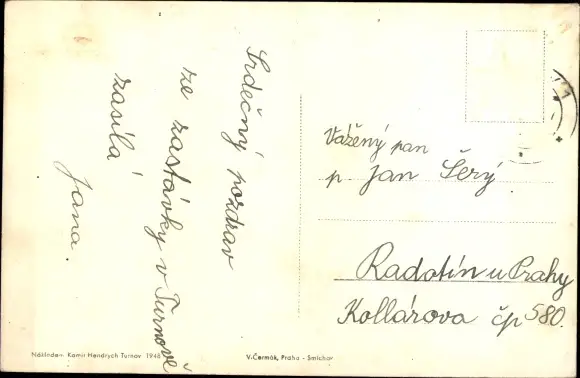 Srdečný pozdrav
ze zastávky v Turnově
zasílá
Jana.
Vážený pan
p. Jan Šerý
Radotín u Prahy
Kollárova čp 580.
Nákladem Kamil Hendrych Turnov 1948
V. Čermák, Praha - Smíchov